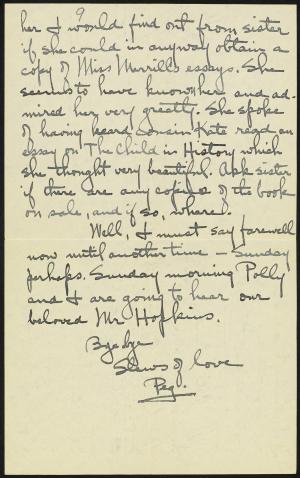 9
her I would find out from sister
if she could in anyway obtain a
copy of Miss Murrill's essays. She
seems to have known her and ad-
mired her very greatly. She spoke
of having heard Cousin Kate read an
essay on The Child in History which
she thought very beautiful. Ask sister
if there are any copies of the book
on sale, and if so, where.
Well, I must say farewell
now until another time — Sunday
perhaps. Sunday morning Polly
and I are going to hear our
beloved Mr Hopkins.
Bye bye
Slews of love
Peg.